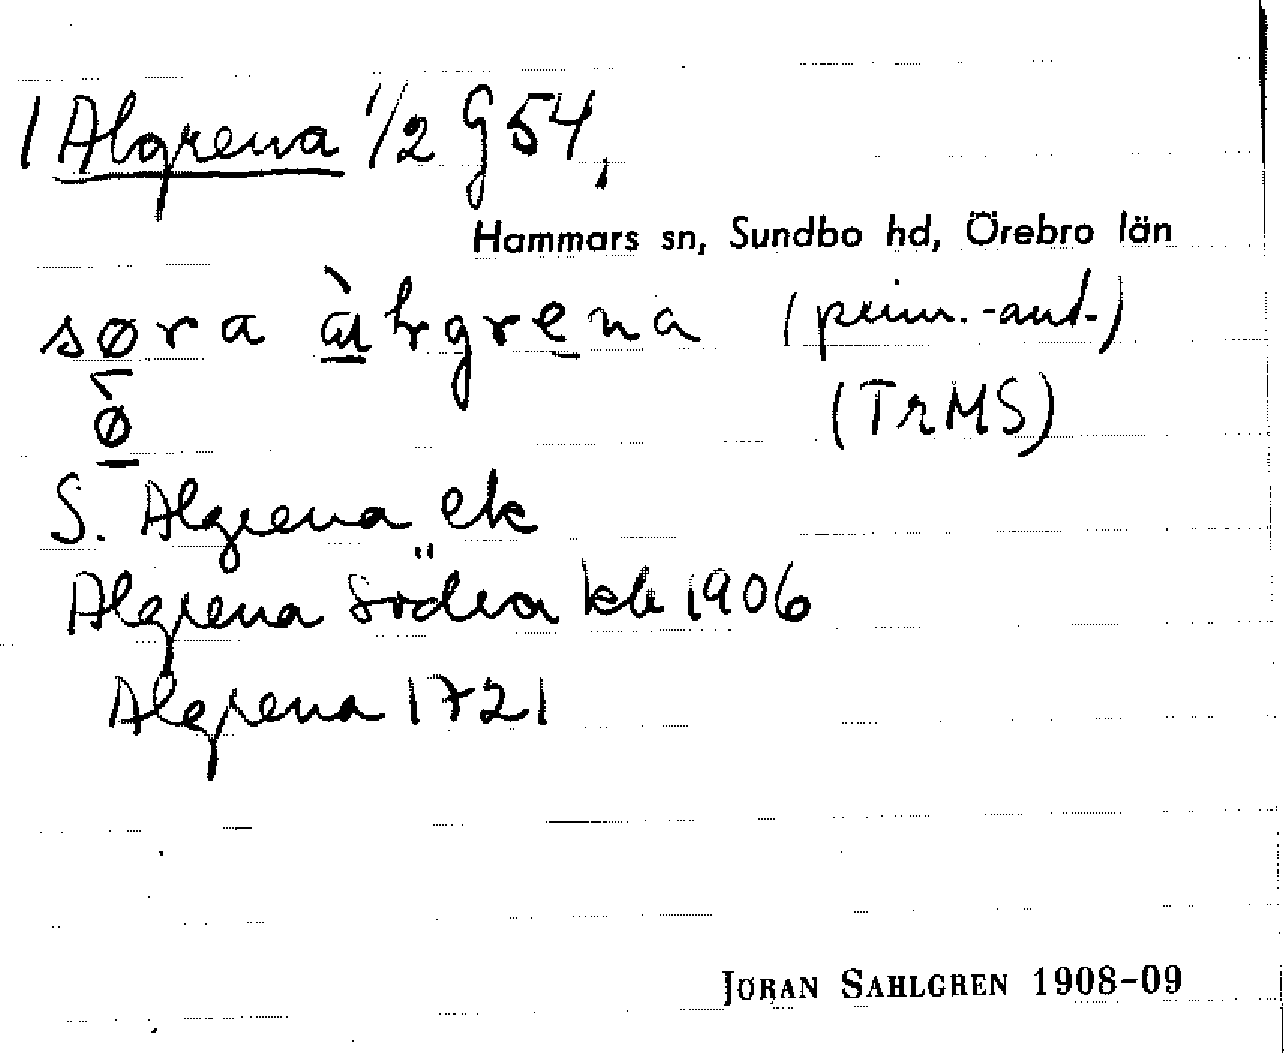 1 Algrena 1/2 G 54,
Hammars sn, Sundbo hd, Örebro län
søra àlrgrena (prim.-aut.)
ø (TrMS)
S. Algrena ek
Algrena Södra kb 1906
Algrena 1721
JÖRAN SAHLGREN 1908-09